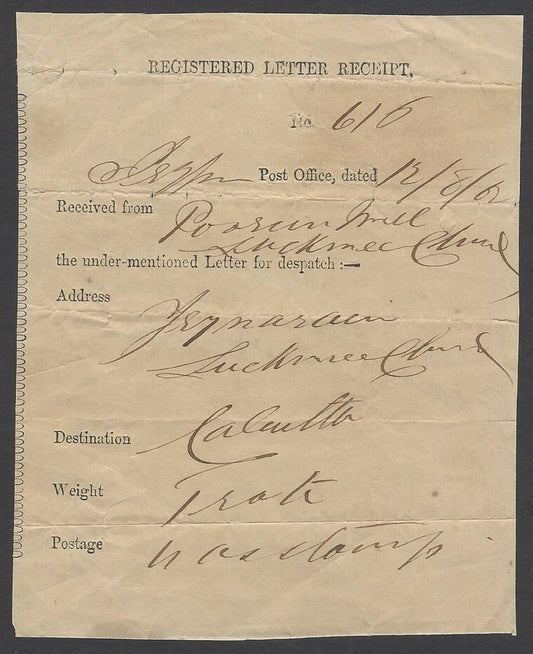 REGISTERED LETTER RECEIPT,
No. 616
Post Office, dated 12/8/6
Received from Poorun Mull
Luckmee Chund
the under-mentioned Letter for despatch :—
Address
Jeynarain
Luckmee Chund
Destination Calcutta
Weight
Postage stamp